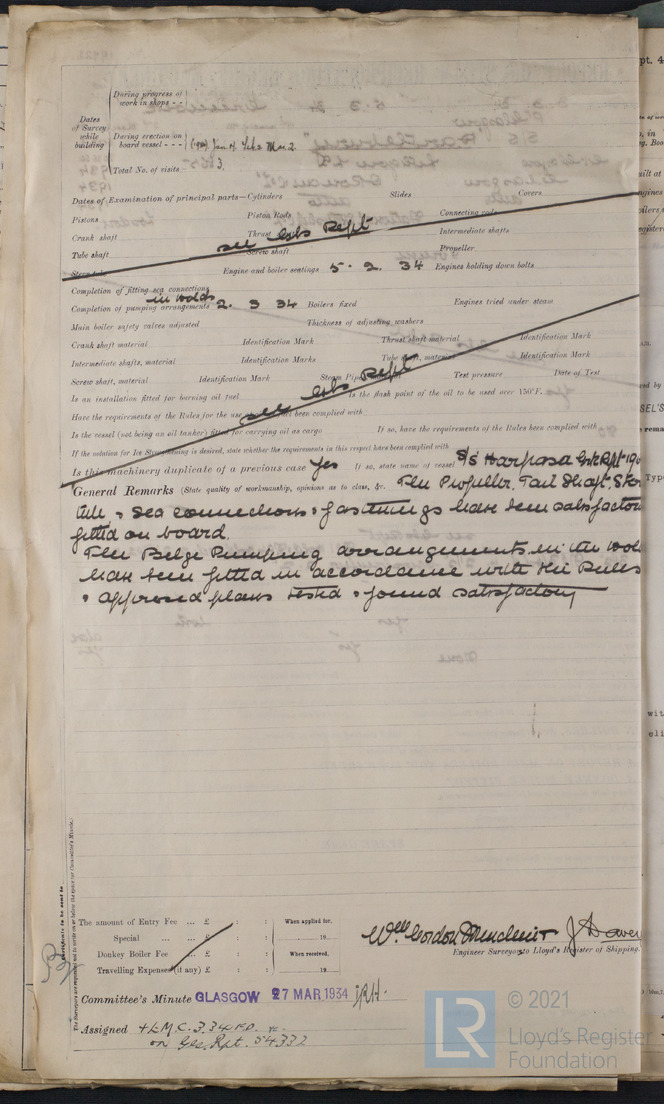 During progress of
work in shops - -
Dates
of Survey
while
building
During erection on
board vessel - - -
(1934) Jan 4. Feb 2 Mar. 2.
Total No. of visits 3.
Dates of Examination of principal parts—Cylinders Slides Covers
Pistons Piston Rods Connecting rods
Crank shaft Thrust shaft Intermediate shafts
see Rept
Tube shaft Screw shaft Propeller
Stern tube Engine and boiler seatings 5. 2. 34 Engines holding down bolts
Completion of fitting sea connections
in holds
Completion of pumping arrangements 2. 3 34 Boilers fixed Engines tried under steam
Main boiler safety valves adjusted Thickness of adjusting washers
Crank shaft material Identification Mark Thrust shaft material Identification Mark
Intermediate shafts, material Identification Marks Tube shaft, material Identification Mark
Screw shaft, material Identification Mark Steam Pipes Test pressure Date of Test
see Rept
Is an installation fitted for burning oil fuel Is the flash point of the oil to be used over 150°F.
Have the requirements of the Rules for the use been complied with
Is the vessel (not being an oil tanker) fitted for carrying oil as cargo If so, have the requirements of the Rules been complied with
If the notation for Ice Strengthening is desired, state whether the requirements in this respect have been complied with
Is this machinery duplicate of a previous case Yes If so, state name of vessel S/S Harpasa Rpt
General Remarks (State quality of workmanship, opinions as to class, &c. The Propeller, Tail Shaft,
tube & Sea connections & fastenings have been
fitted on board.
The Belge Pumping arrangements in the
have been fitted in accordance with the Rules
& approved plans tested & found satisfactory
The amount of Entry Fee ... £ : : When applied for,
Special ... ... £ : : 19
Donkey Boiler Fee ... £ : : When received,
Travelling Expenses (if any) £ : : 19
Wm Gordon
Engineer Surveyor to Lloyd's Register of Shipping.
Committee's Minute GLASGOW 27 MAR 1934
Assigned + L.M.C. 3.34 F.D.
on Gls. Rpt. 54332
© 2021
Lloyd's Register
Foundation